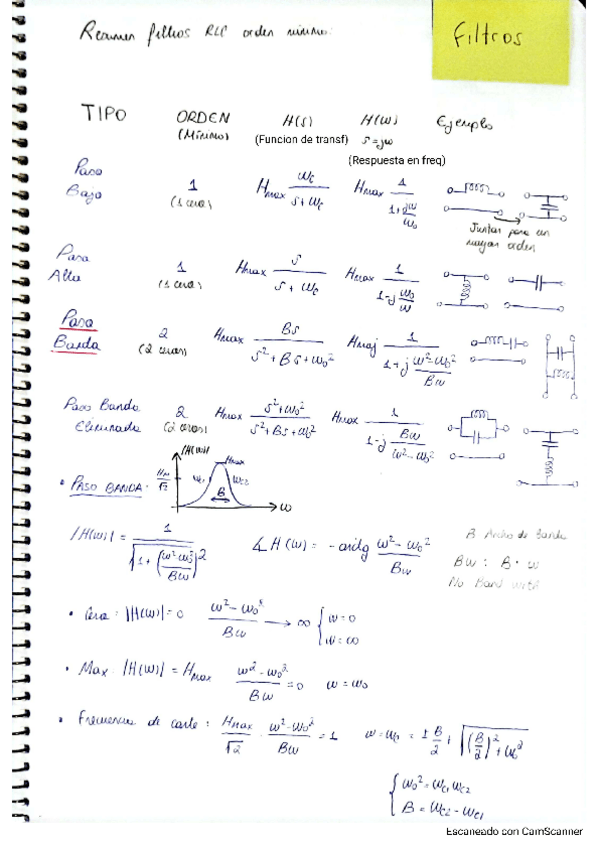 Resumen filtros RLC orden mínimo:
Filtros
TIPO ORDEN (Mínimo) H(s) (Funcion de transf) H(ω) s=jω (Respuesta en freq) Ejemplo
Paso Bajo 1 (1 cero) Hmax ωc/(s+ωc) Hmax 1/(1+jω/ω₀)
Juntar para un mayor orden
Paso Alto 1 (1 cero) Hmax s/(s+ωc) Hmax 1/(1-jω₀/ω)
Paso Banda 2 (2 ceros) Hmax Bs/(s²+Bs+ω₀²) Hmax 1/(1+j(ω²-ω₀²)/(Bω))
Paso Banda Eliminada 2 (2 ceros) Hmax (s²+ω₀²)/(s²+Bs+ω₀²) Hmax 1/(1-jBω/(ω²-ω₀²))
• PASO BANDA: |H(ω)| Hm/√2 Hmax ωc1 ωc2 B ω
|H(ω)| = 1/√(1+((ω²-ω₀²)/(Bω))²) ∡H(ω) = -arctg (ω²-ω₀²)/(Bω)
B Ancho de Banda
Bω : B · ω
No Band with
• Cero: |H(ω)|=0 (ω²-ω₀²)/(Bω) → ∞ { ω=0 ω=∞
• Max |H(ω)| = Hmax (ω²-ω₀²)/(Bω) = 0 ω=ω₀
• Frecuencias de corte: Hmax/√2 (ω²-ω₀²)/(Bω) = 1 ω=ωc = ± B/2 + √((B/2)²+ω₀²)
{ ω₀² = ωc1 ωc2
B = ωc2 - ωc1
Escaneado con CamScanner